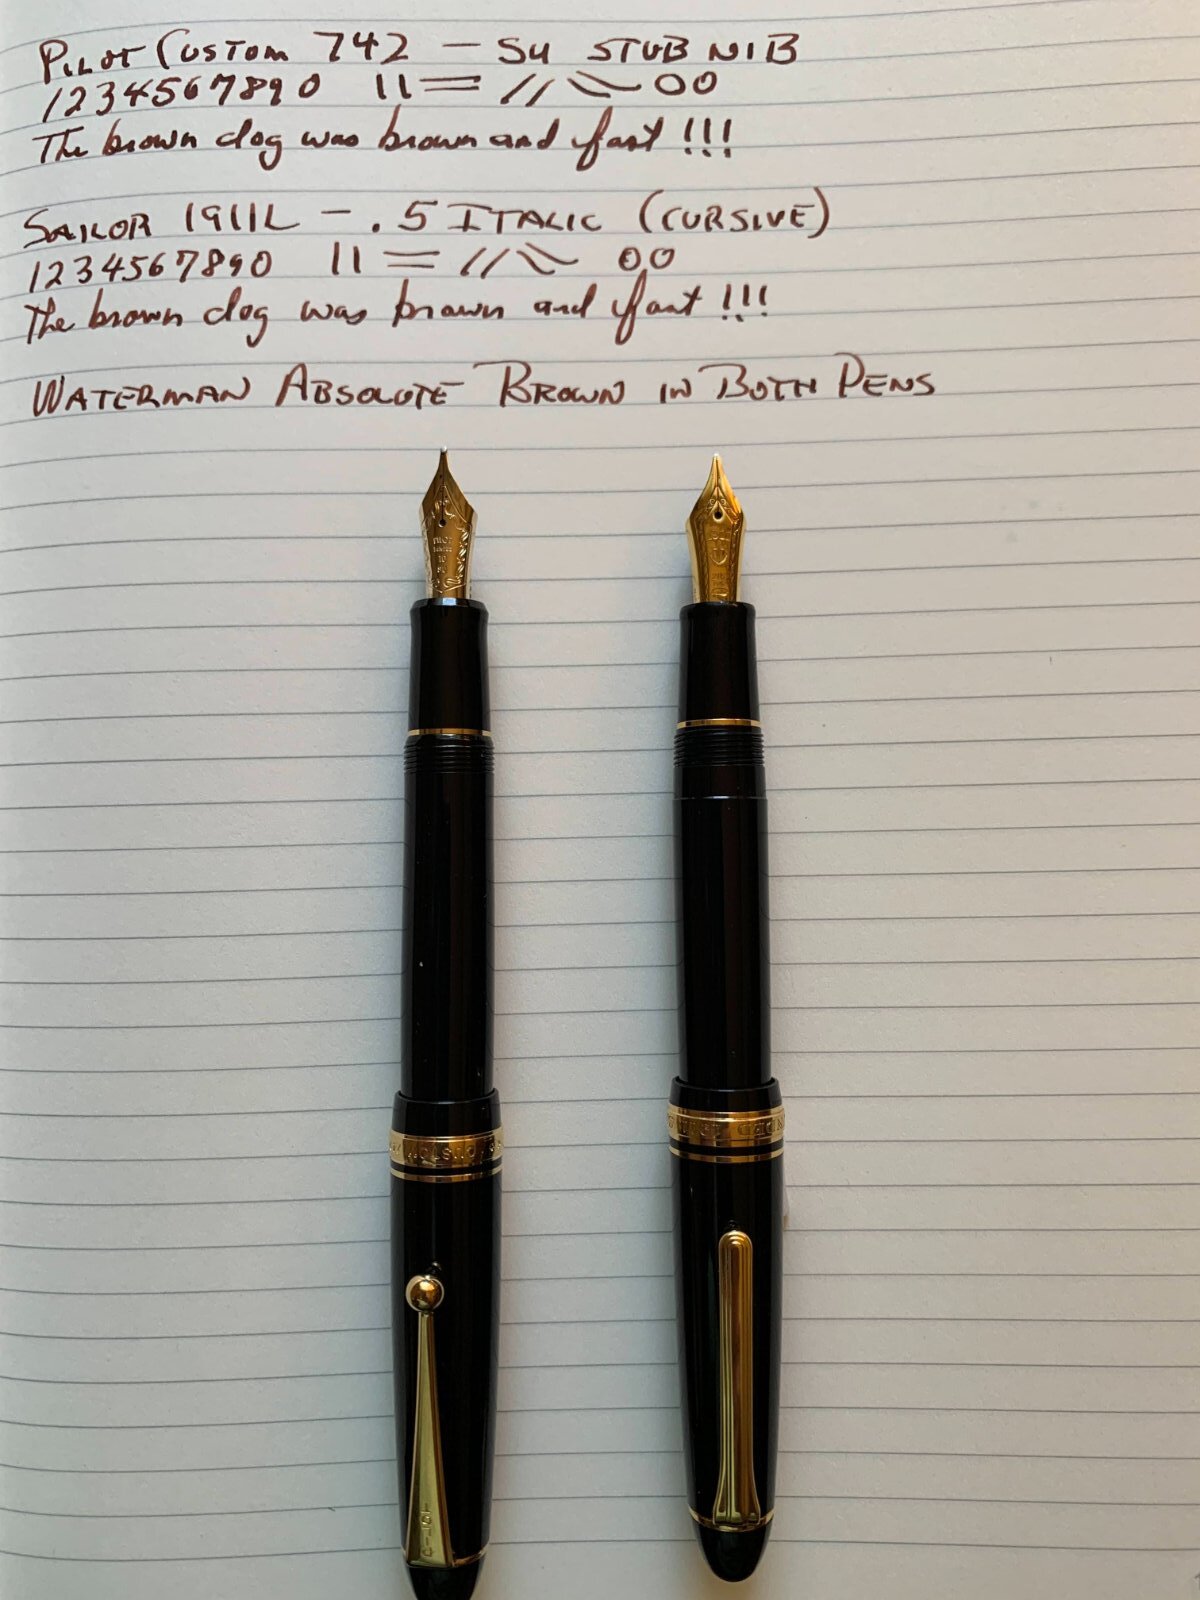 PILOT CUSTOM 742 – SU STUB NIB
1234567890 11 = // \\ 00
The brown dog was brown and fast !!!
SAILOR 1911L – .5 ITALIC (CURSIVE)
1234567890 11 = // \\ 00
The brown dog was brown and fast !!!
WATERMAN ABSOLUTE BROWN IN BOTH PENS
PILOT
CUSTOM
PILOT